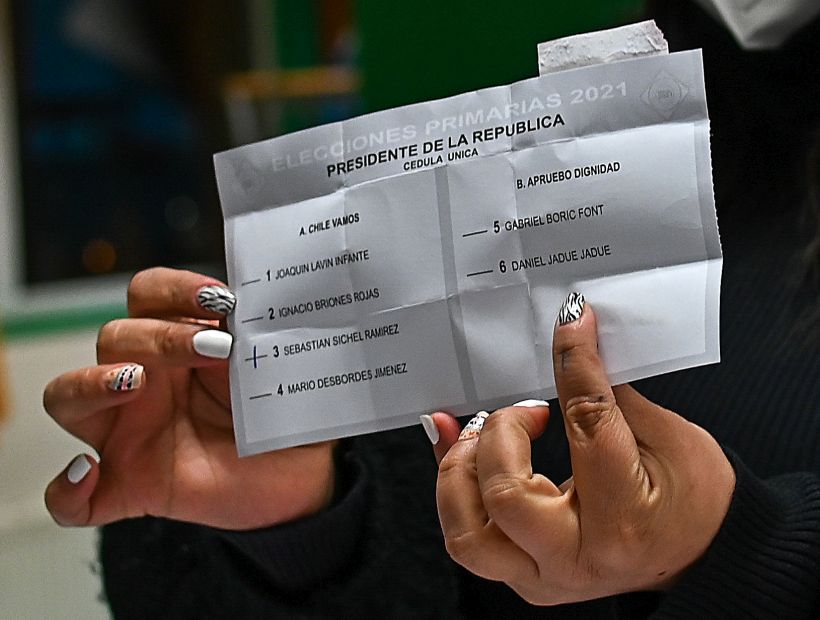 ELECCIONES PRIMARIAS 2021
PRESIDENTE DE LA REPUBLICA
CEDULA UNICA
A. CHILE VAMOS
1 JOAQUIN LAVIN INFANTE
2 IGNACIO BRIONES ROJAS
3 SEBASTIAN SICHEL RAMIREZ
4 MARIO DESBORDES JIMENEZ
B. APRUEBO DIGNIDAD
5 GABRIEL BORIC FONT
6 DANIEL JADUE JADUE